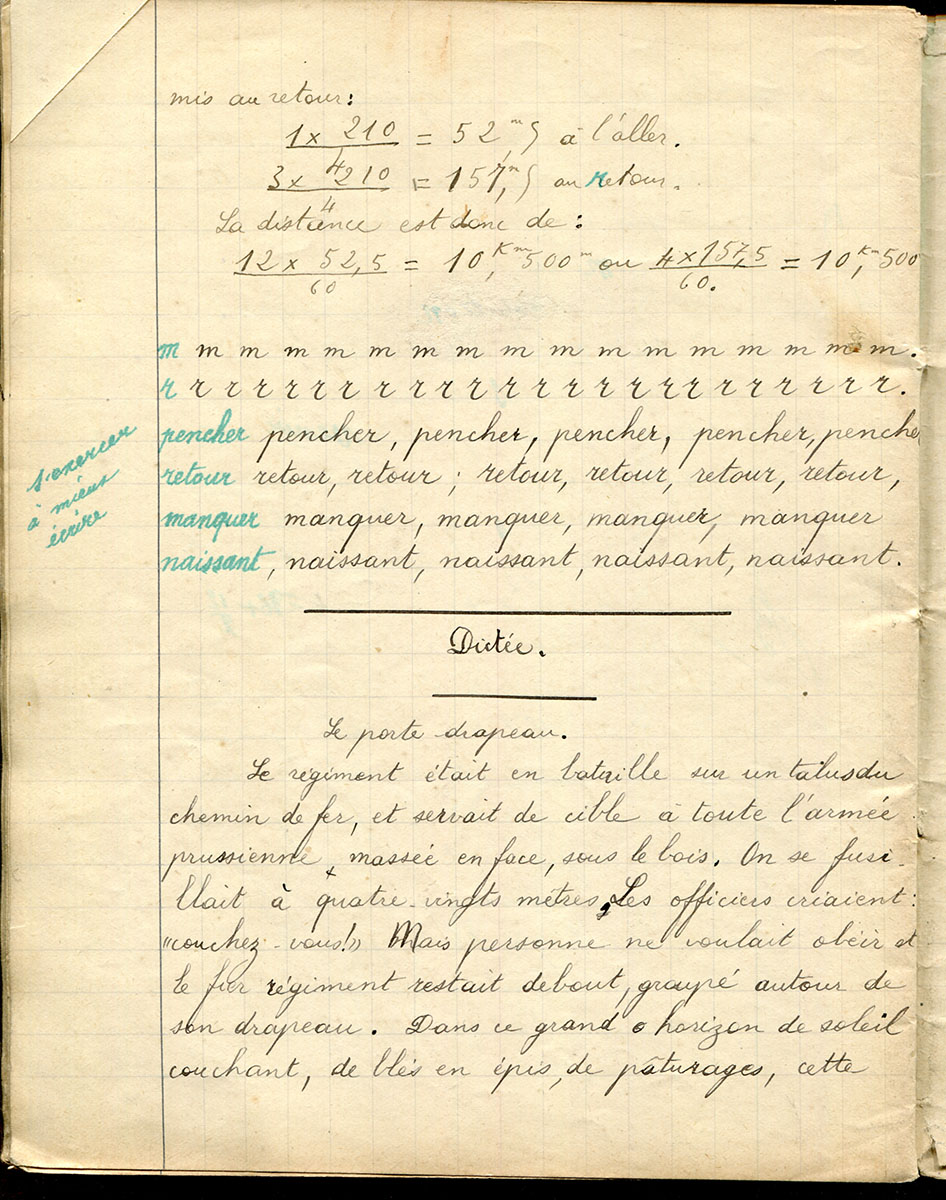 mis au retour:
1 x 210 / 4 = 52,m5 à l'aller.
3 x 210 / 4 = 157,m5 au retour.
La distance est donc de:
12 x 52,5 / 60 = 10,Km500m ou 4 x 157,5 / 60. = 10,Km500
m m m m m m m m m m m m m m m m m.
r r r r r r r r r r r r r r r r r r r r r r r r r.
pencher pencher, pencher, pencher, pencher, penche
s'exercer
à mieux
écrire
retour retour, retour; retour, retour, retour, retour,
manquer manquer, manquer, manquer, manquer
naissant, naissant, naissant, naissant, naissant.
Dictée.
Le porte-drapeau.
Le régiment était en bataille sur un talus du
chemin de fer, et servait de cible à toute l'armée
prussienne, masseé en face, sous le bois. On se fusi-
llait à quatre-vingts mètres, Les officiers criaient:
"couchez-vous!" Mais personne ne voulait obéir et
le fier régiment restait debout, groupé autour de
son drapeau. Dans ce grand horizon de soleil
couchant, de blés en épis, de pâturages, cette